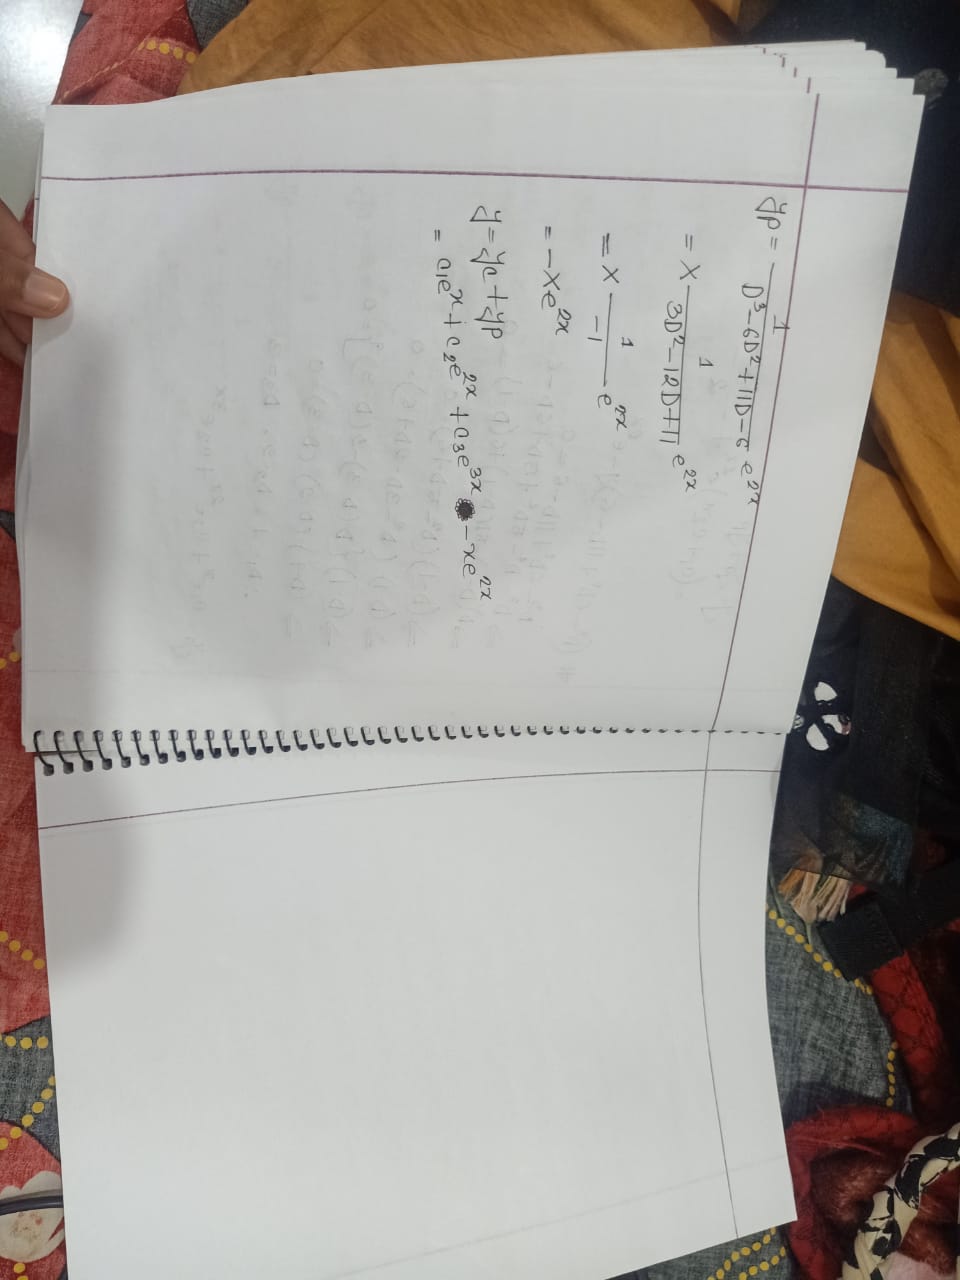 yp = 1/(D³-6D²+11D-6) e^2x
= x 1/(3D²-12D+11) e^2x
= x 1/-1 e^2x
= -xe^2x
y = yc + yp
= c₁e^x + c₂e^2x + c₃e^3x - xe^2x